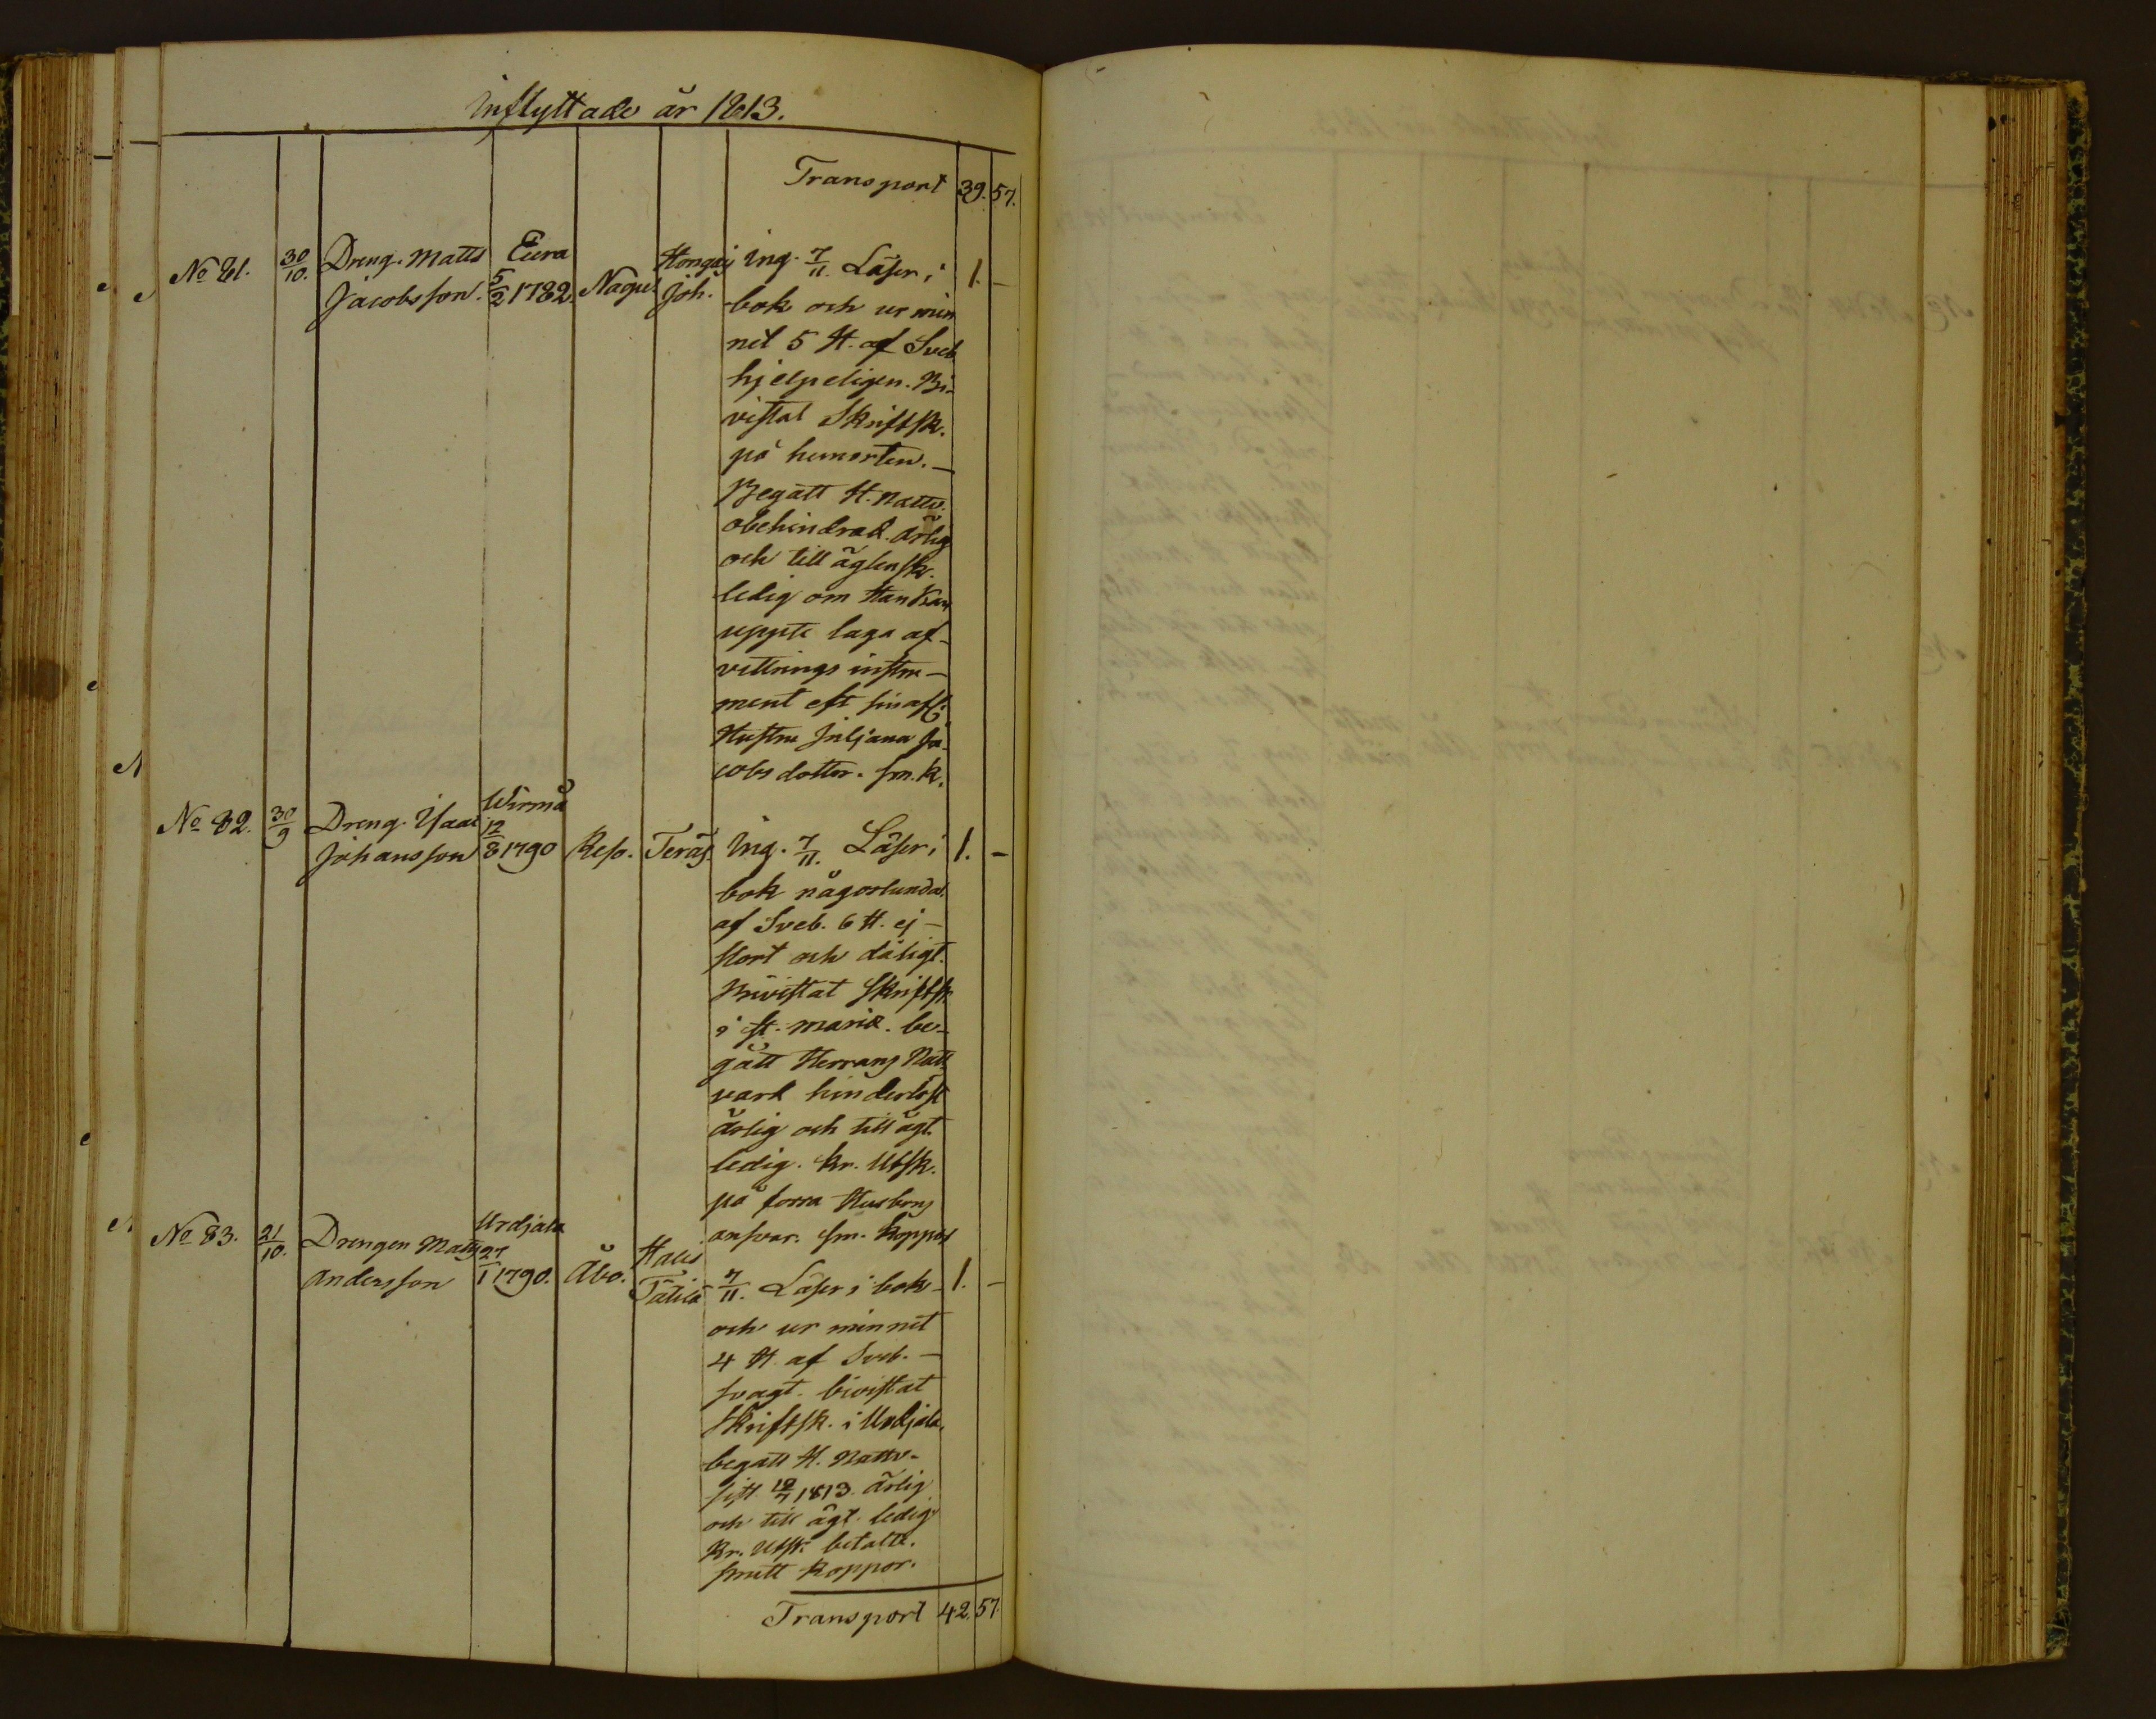 Inflyttade år 1813.
Transport 39. 57.
No 81. 30/10. Dreng. Matts Jacobsson. Eura 5/2 1782. Nagu. Joh. Ing. 7/11. Läser i 1. –
bok och ur min
net 5 H. af Sveb.
hjelpeligen. Bi-
vistat Skriftsk.
på hemorten. –
Begått H. Nattv.
obehindrad. ärlig
och till äktensk.
ledig om Han kan
uppte laga af-
vittrings instru-
ment eft sin afl.
Hustru Juliana Ja-
cobsdotter. sm. k.
No 82. 30/9 Dreng. Isaac Johansson Wirmå 12/8 1790 Reso. Teräs. Ing. 7/11. Läser i 1. –
bok någorlunda.
af Sveb. 6 H. ej –
stort och dåligt.
Bivistat Skriftsk.
i St. Mariæ. be-
gått Herrans Natt
vard hinderlöst
ärlig och till ägt.
ledig. Kr. Utsk.
på förra Husbons
ansvar. sm. koppor
No 83. 21/10. Drengen Matts Andersson Urdjala 27/1 1790. Åbo. 7/11. Läser i bok 1. –
och ur minnet
4 H. af Sveb. –
svagt. bivistat
Skriftsk. i Urdjala.
begått H. Nattv.
sist 18/7 1813. ärlig
och till ägt. ledig
Kr. Utsk. betalte.
smitt koppor.
Transport 42. 57.